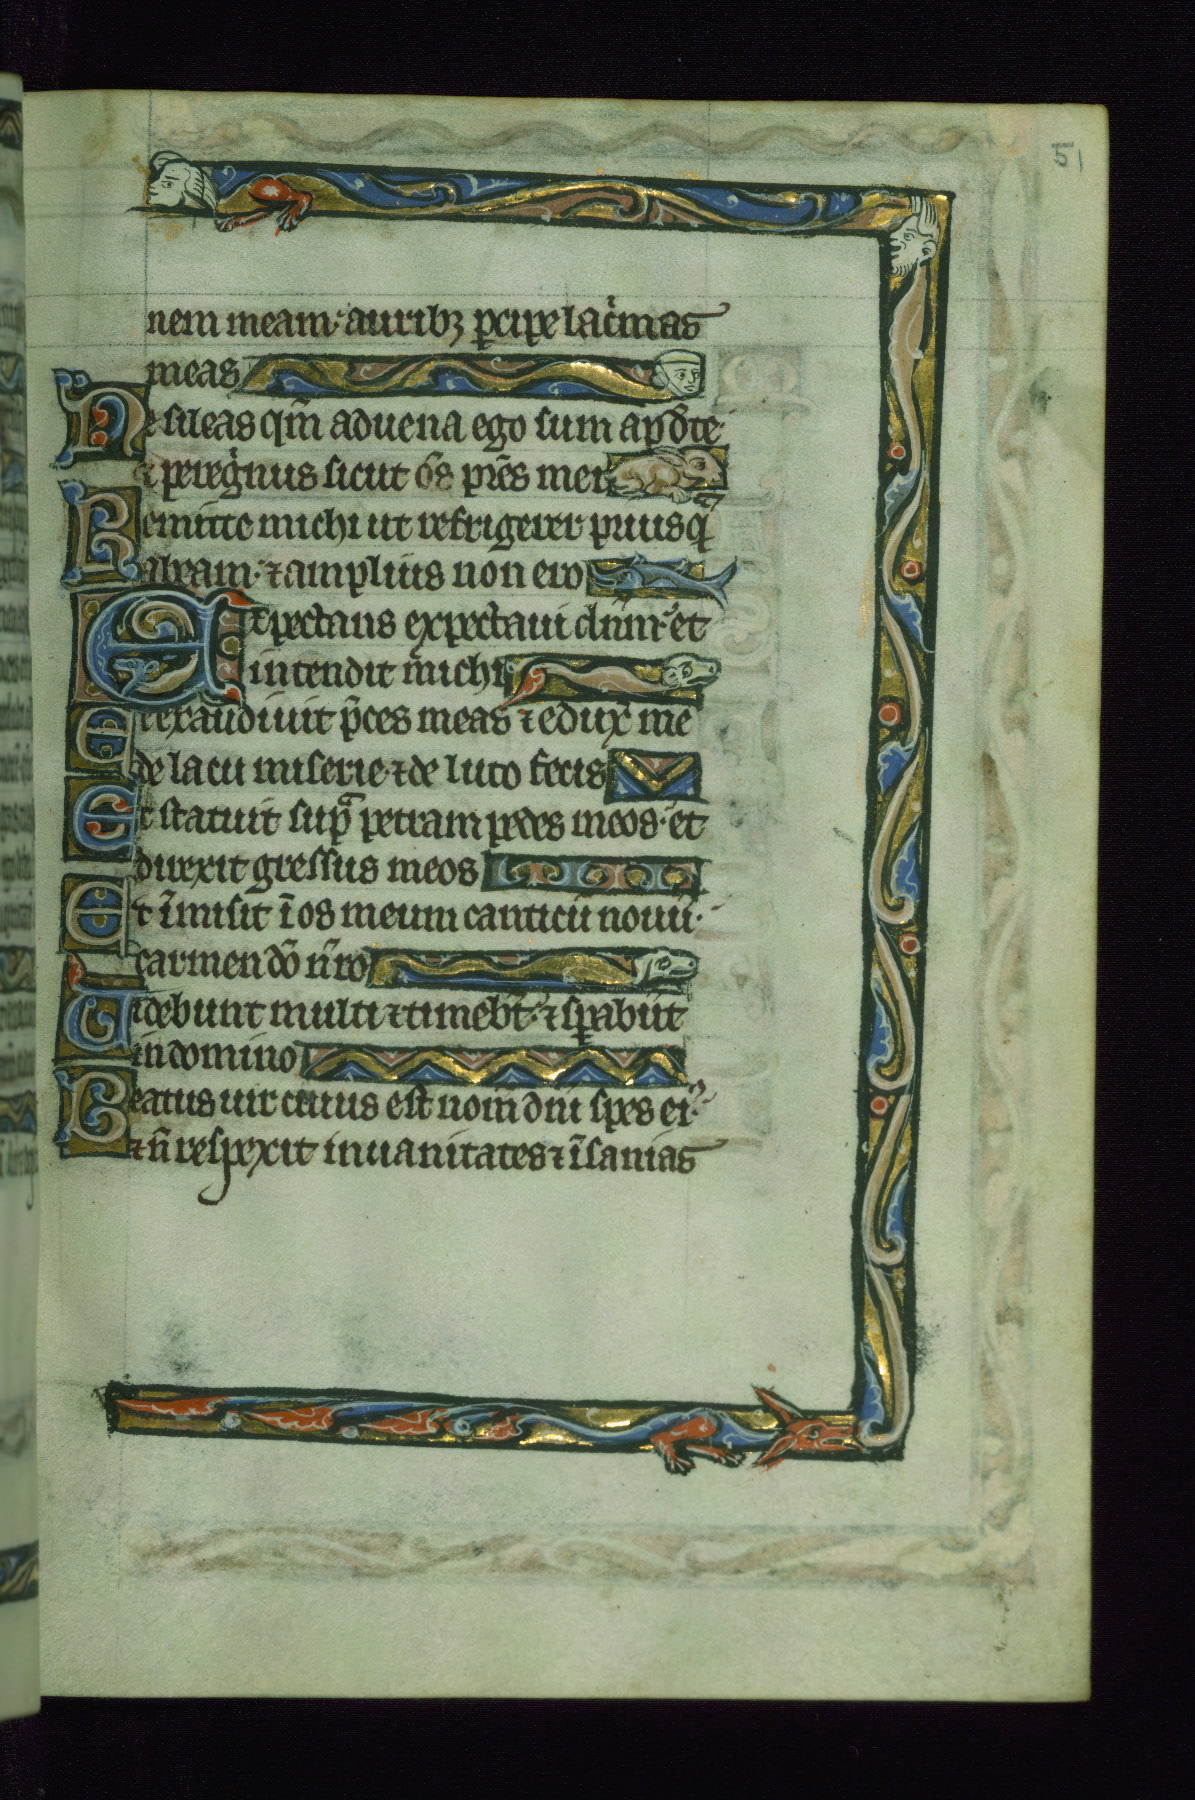 51
nem meam· auribꝫ ꝑcipe lac̃mas
meas
Ne sileas qm̃ aduena ego sum apd̃ te·
⁊ peregͥnus sicut om̃s pr̃es mei
Remitte michi ut refrigerer priusqͣ
abeam· ⁊ amplius non ero
Expectans expectaui dñm· et
intendit michi
Et exaudiuit p̃ces meas ⁊ eduxͭ me
de lacu miserie· ⁊ de luto fecis
Et statuit supͣ petram pedes meos· et
direxit gressus meos
Et ĩmisit ĩ os meum canticũ nouũ·
carmen dõ nr̃o
Videbunt multi ⁊ timebt̃· ⁊ sꝑabũt
in domino
Beatus uir cuius est nom̃ dñi spes eiꝰ·
⁊ ñ respexit in uanitates ⁊ ĩsanias